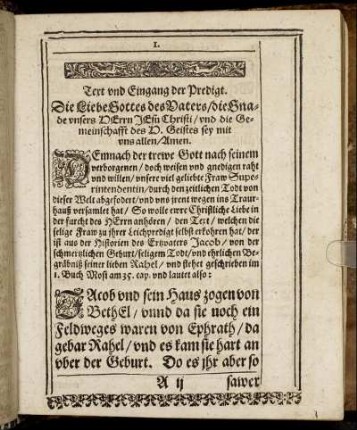 1.
Text vnd Eingang der Predigt.
Die Liebe Gottes des Vaters/die Gna-
de vnsers HErrn JEsu Christi/ vnd die Ge-
meinschafft des H. Geistes sey mit
vns allen/Amen.
DEmnach der trewe Gott nach seinem
verborgenen/doch weisen vnd gnedigen raht
vnd willen/vnsere viel geliebte Fraw Supe-
rintendentin/durch den zeitlichen Todt von
dieser Welt abgefodert/vnd vns jrent wegen ins Traur-
hauß versamlet hat/ So wolle ewre Christliche Liebe in
der furcht des HErrn anhören/ den Text/ welchen die
selige Fraw zu jhrer Leichpredigt selbst erkohren hat/der
ist aus der Historien des Ertzvaters Jacob/ von der
schmertzlichen Geburt/seligem Todt/vnd ehrlichen Be-
gräbniß seiner lieben Rahel/ vnd stehet geschrieben im
1. Buch Mosi am 35. cap. vnd lautet also:
JAcob vnd sein Haus zogen von
BethEl/ vnnd da sie noch ein
Feldweges waren von Ephrath/da
gebar Rahel/ vnd es kam sie hart an
vber der Geburt. Do es jhr aber so
A ij sawer